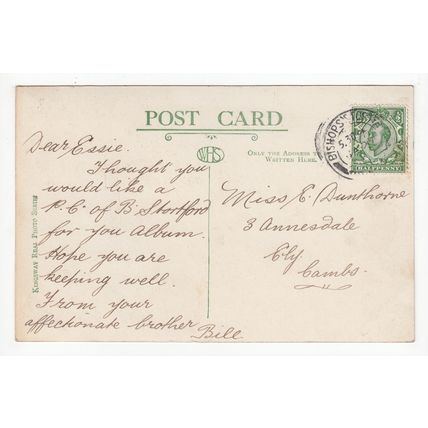 POST CARD
WHS
ONLY THE ADDRESS TO BE
WRITTEN HERE.
KINGSWAY REAL PHOTO SERIES
Dear Essie.
I thought you
would like a
P.C. of B. Stortford
for you album.
Hope you are
keeping well.
From your
affectionate brother
Bill
Miss E. Dunthorne
3 Annesdale
Ely
Cambs.
BISHOPS STORTFORD
HALFPENNY